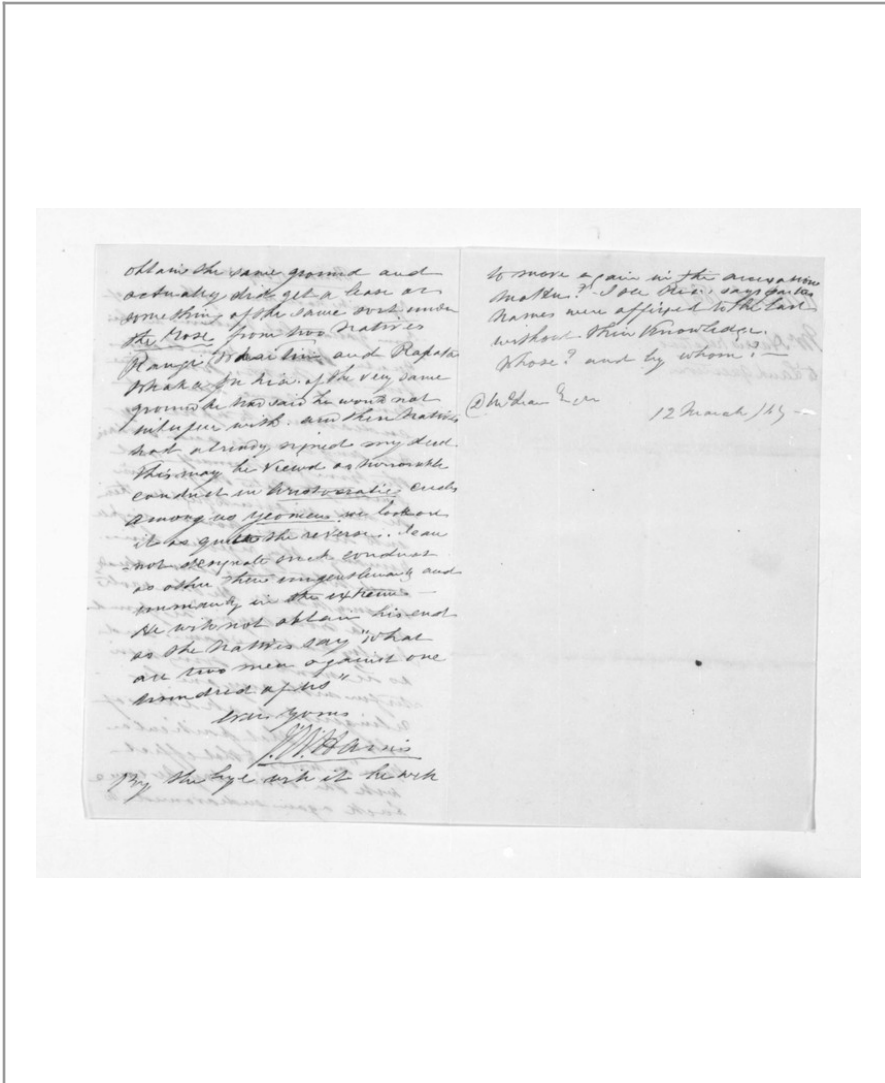 obtain the same ground and
actually did get a lease or
something of the same sort under
the Rose from two Natives
Rangi and Rapata
Whaka of the very same
ground he had said he would not
interfere with. and these Natives
had already signed my deed
this may be viewed as honorable
conduct in Aristocratic circles
among us yeomen we look on
it as quite the reverse. I can
not designate such conduct
as other than ungentlemanly and
in the extreme —
He will not obtain his end
as the Natives say "what
are two men against one
hundred of us"
yours
J.W. Harris
By the bye ask if he will
to move again in the
matter? I see says
names were affixed to the
without their knowledge.
Whose? and by whom? —
D McLean Esqre
12 March /69 —